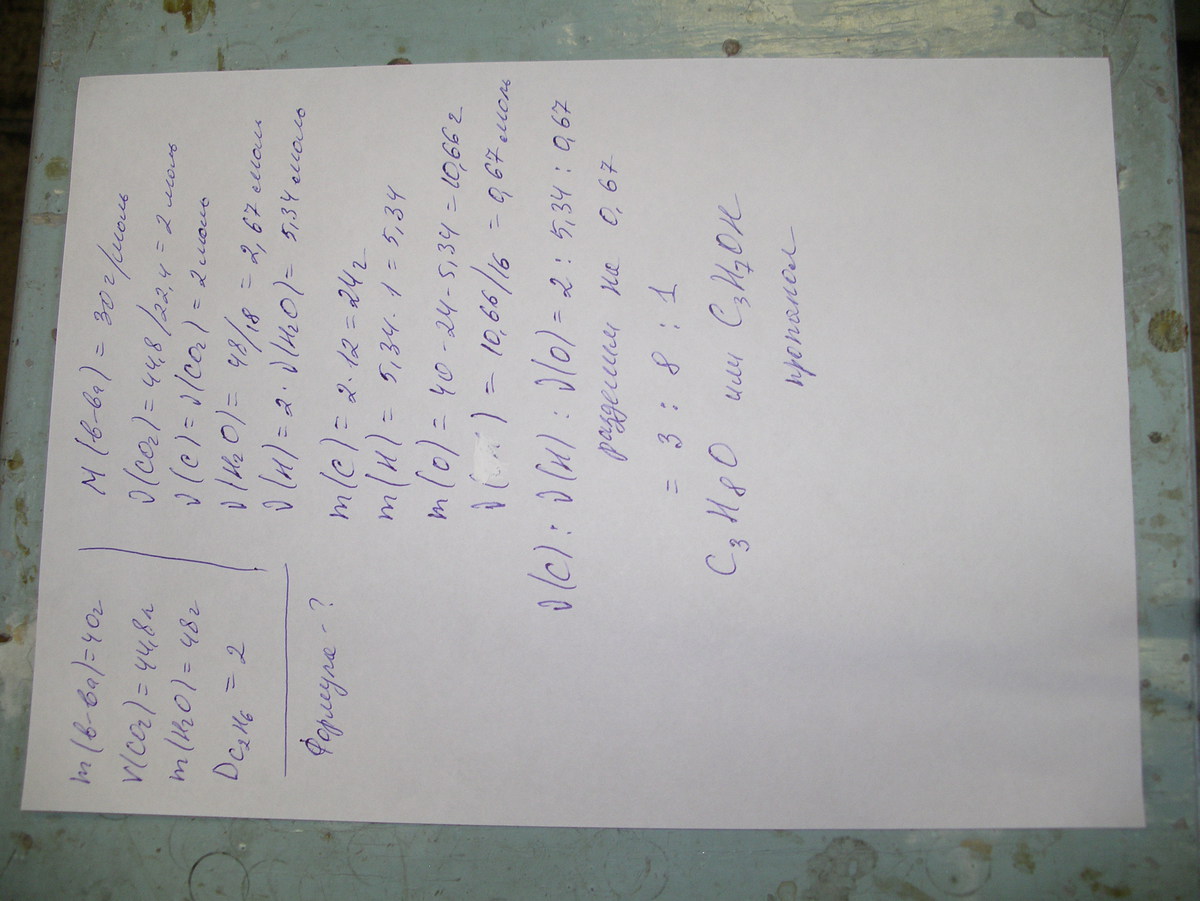 m(в-ва)=40г
V(CO₂)=44,8л
m(H₂O)=48г
D C₂H₆ = 2
Формула-?
M(в-ва) = 30г/моль
ν(CO₂) = 44,8/22,4 = 2 моль
ν(C) = ν(CO₂) = 2 моль
ν(H₂O) = 48/18 = 2,67 моль
ν(H) = 2·ν(H₂O) = 5,34 моль
m(C) = 2·12 = 24г
m(H) = 5,34·1 = 5,34
m(O) = 40-24-5,34 = 10,66г
ν( ) = 10,66/16 = 0,67 моль
ν(C) : ν(H) : ν(O) = 2 : 5,34 : 0,67
разделим на 0,67
= 3 : 8 : 1
C₃H₈O или C₃H₇OH
пропанол